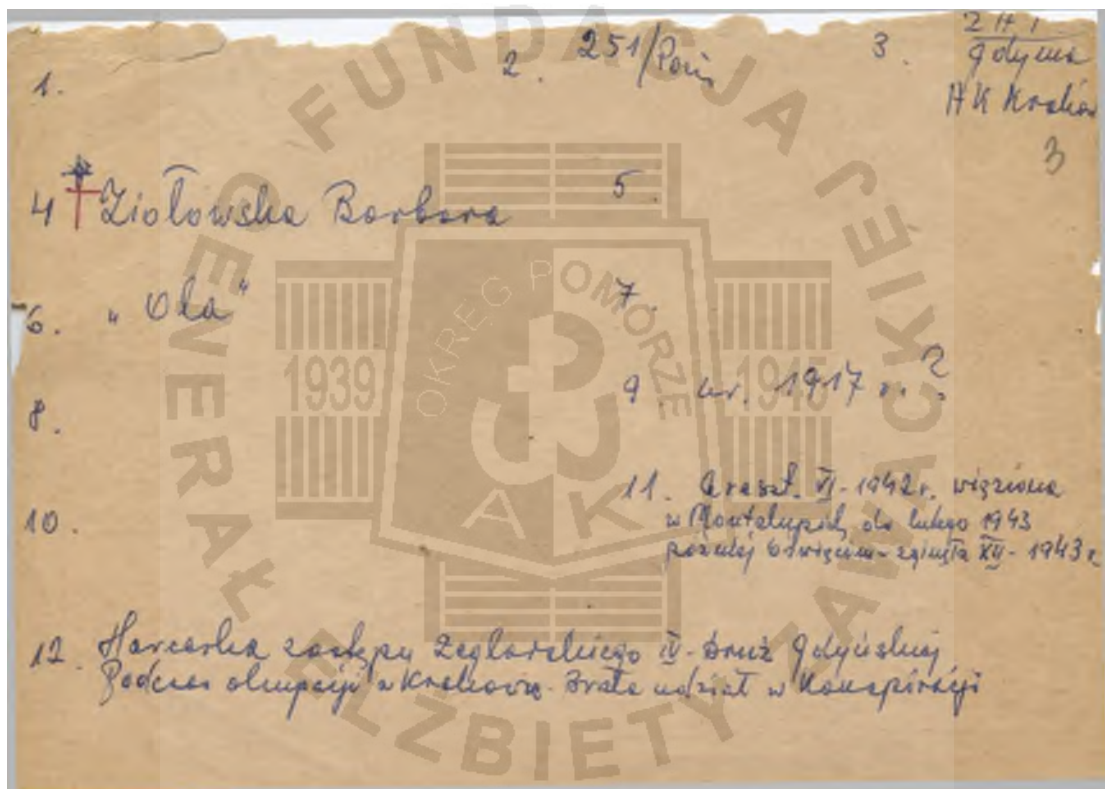 1.
2. 251/Pom
3. ZHP
Gdynia
HK Kraków
3
4 Ziołowska Barbara
5.
6. „Ola"
7.
8.
9 ur. 1917 r. ?
10.
11. Areszt. VI-1942r. więziona
w Montelupich do lutego 1943
później Oświęcim - zginęła XII-1943 r.
12. Harcerka zastępu żeglarskiego IV-Druż Gdyńskiej
Podczas okupacji w Krakowie. Brała udział w Konspiracji
FUNDACJA GENERAŁ ELŻBIETY ZAWACKIEJ
OKRĘG POMORZE
1939
1945
AK